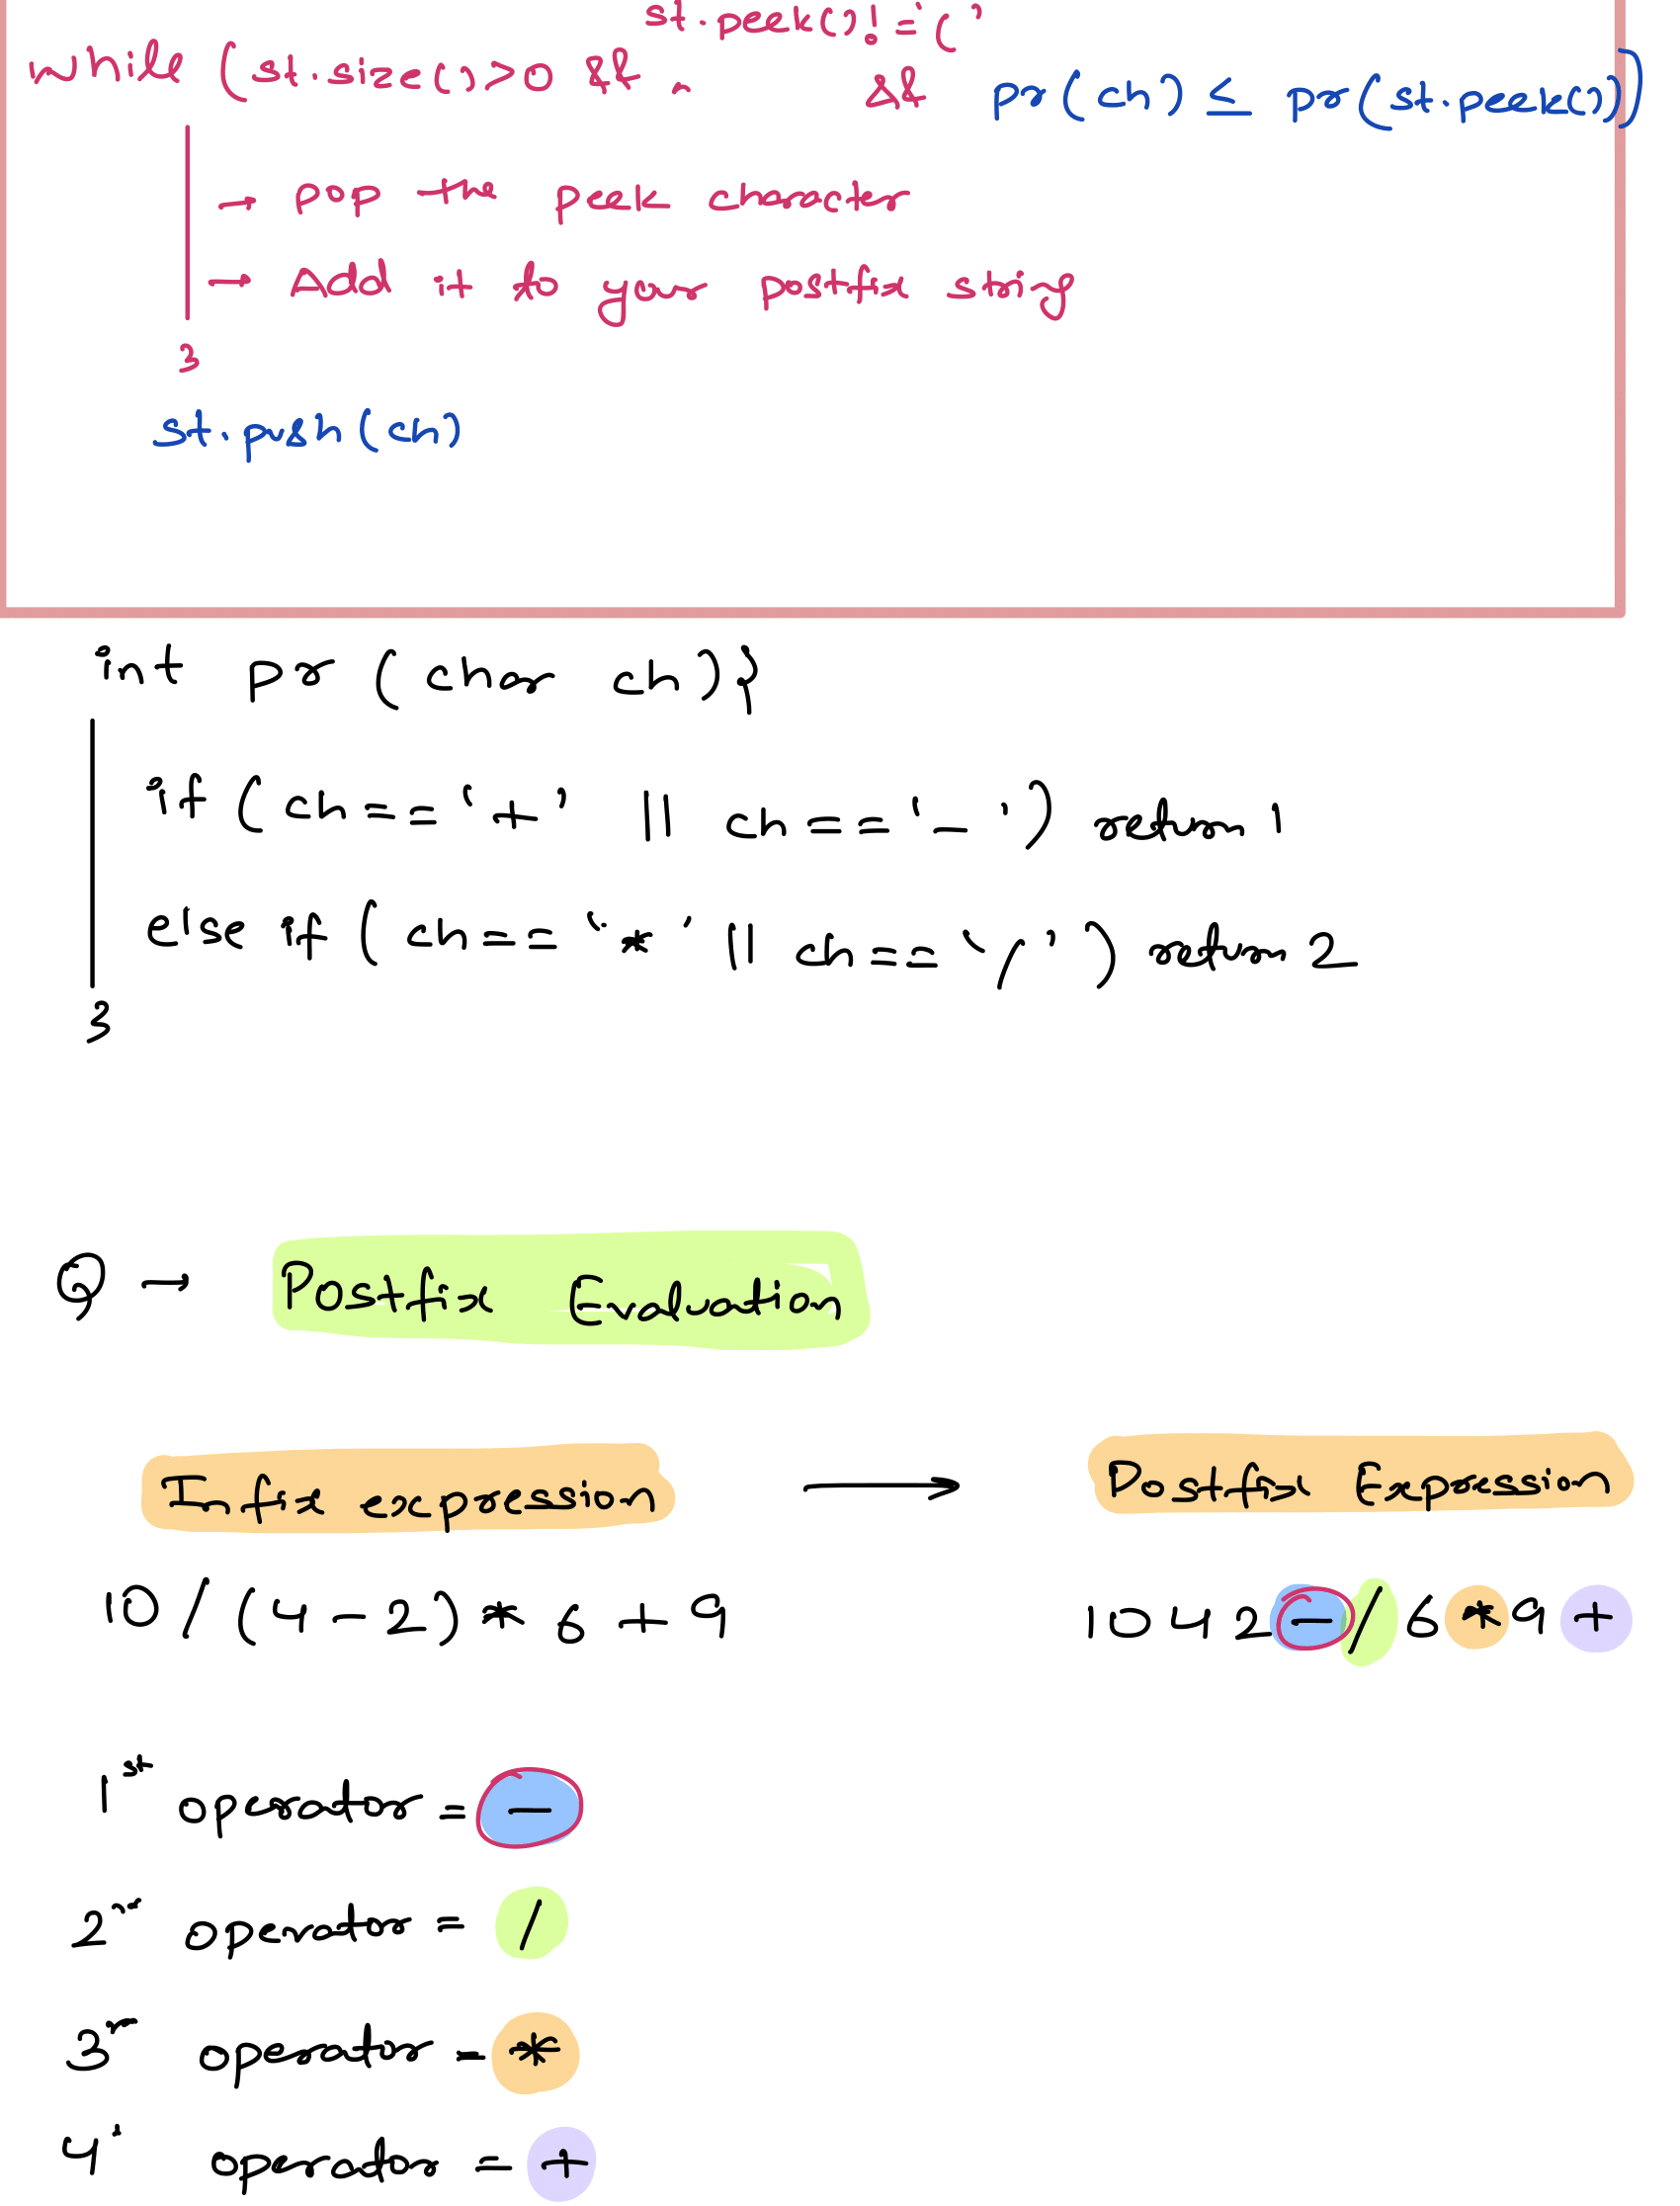 st.peek()!='('
while (st.size()>0 && ^ && pr(ch) ≤ pr(st.peek()))
→ pop the peek character
→ Add it to your postfix string
}
st.push(ch)
int pr (char ch){
if (ch=='+' || ch=='-') return 1
else if (ch=='*' || ch=='/') return 2
}
Q → Postfix Evaluation
Infix expression → Postfix Expression
10/(4-2)*6+9 10 4 2 - / 6 * 9 +
1st operator = -
2nd operator = /
3rd operator = *
4 operator = +